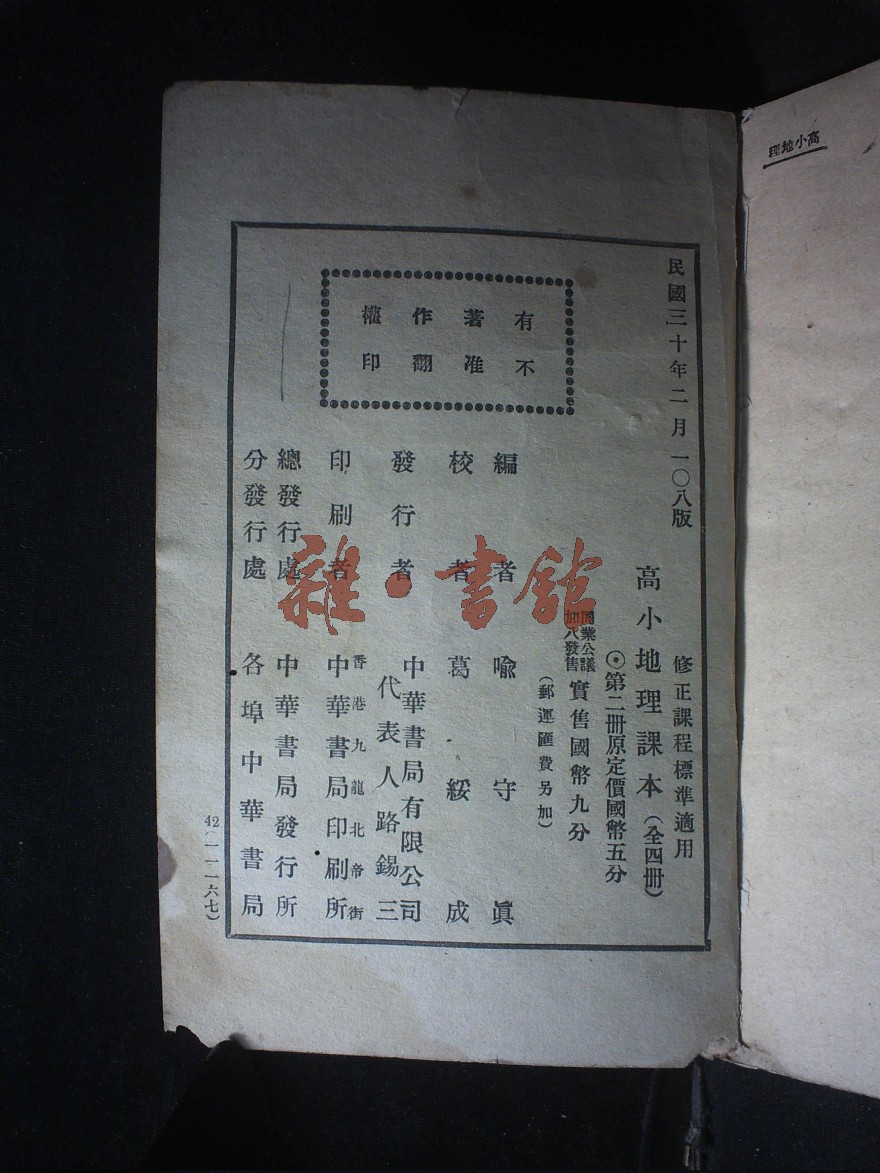 高小地理
民國三十年二月一〇八版
修正課程標準適用
高小地理課本(全四冊)
⊙第二冊原定價國幣五分
同業公議
加八發售
實售國幣九分
(郵運匯費另加)
有著作權
不准翻印
編者 喩守眞
校者 葛綏成
發行者 中華書局有限公司
代表人路錫三
印刷者 香港九龍北帝街
中華書局印刷所
總發行處 中華書局發行所
分發行處 各埠中華書局
42(一一一六七)
雜·書館